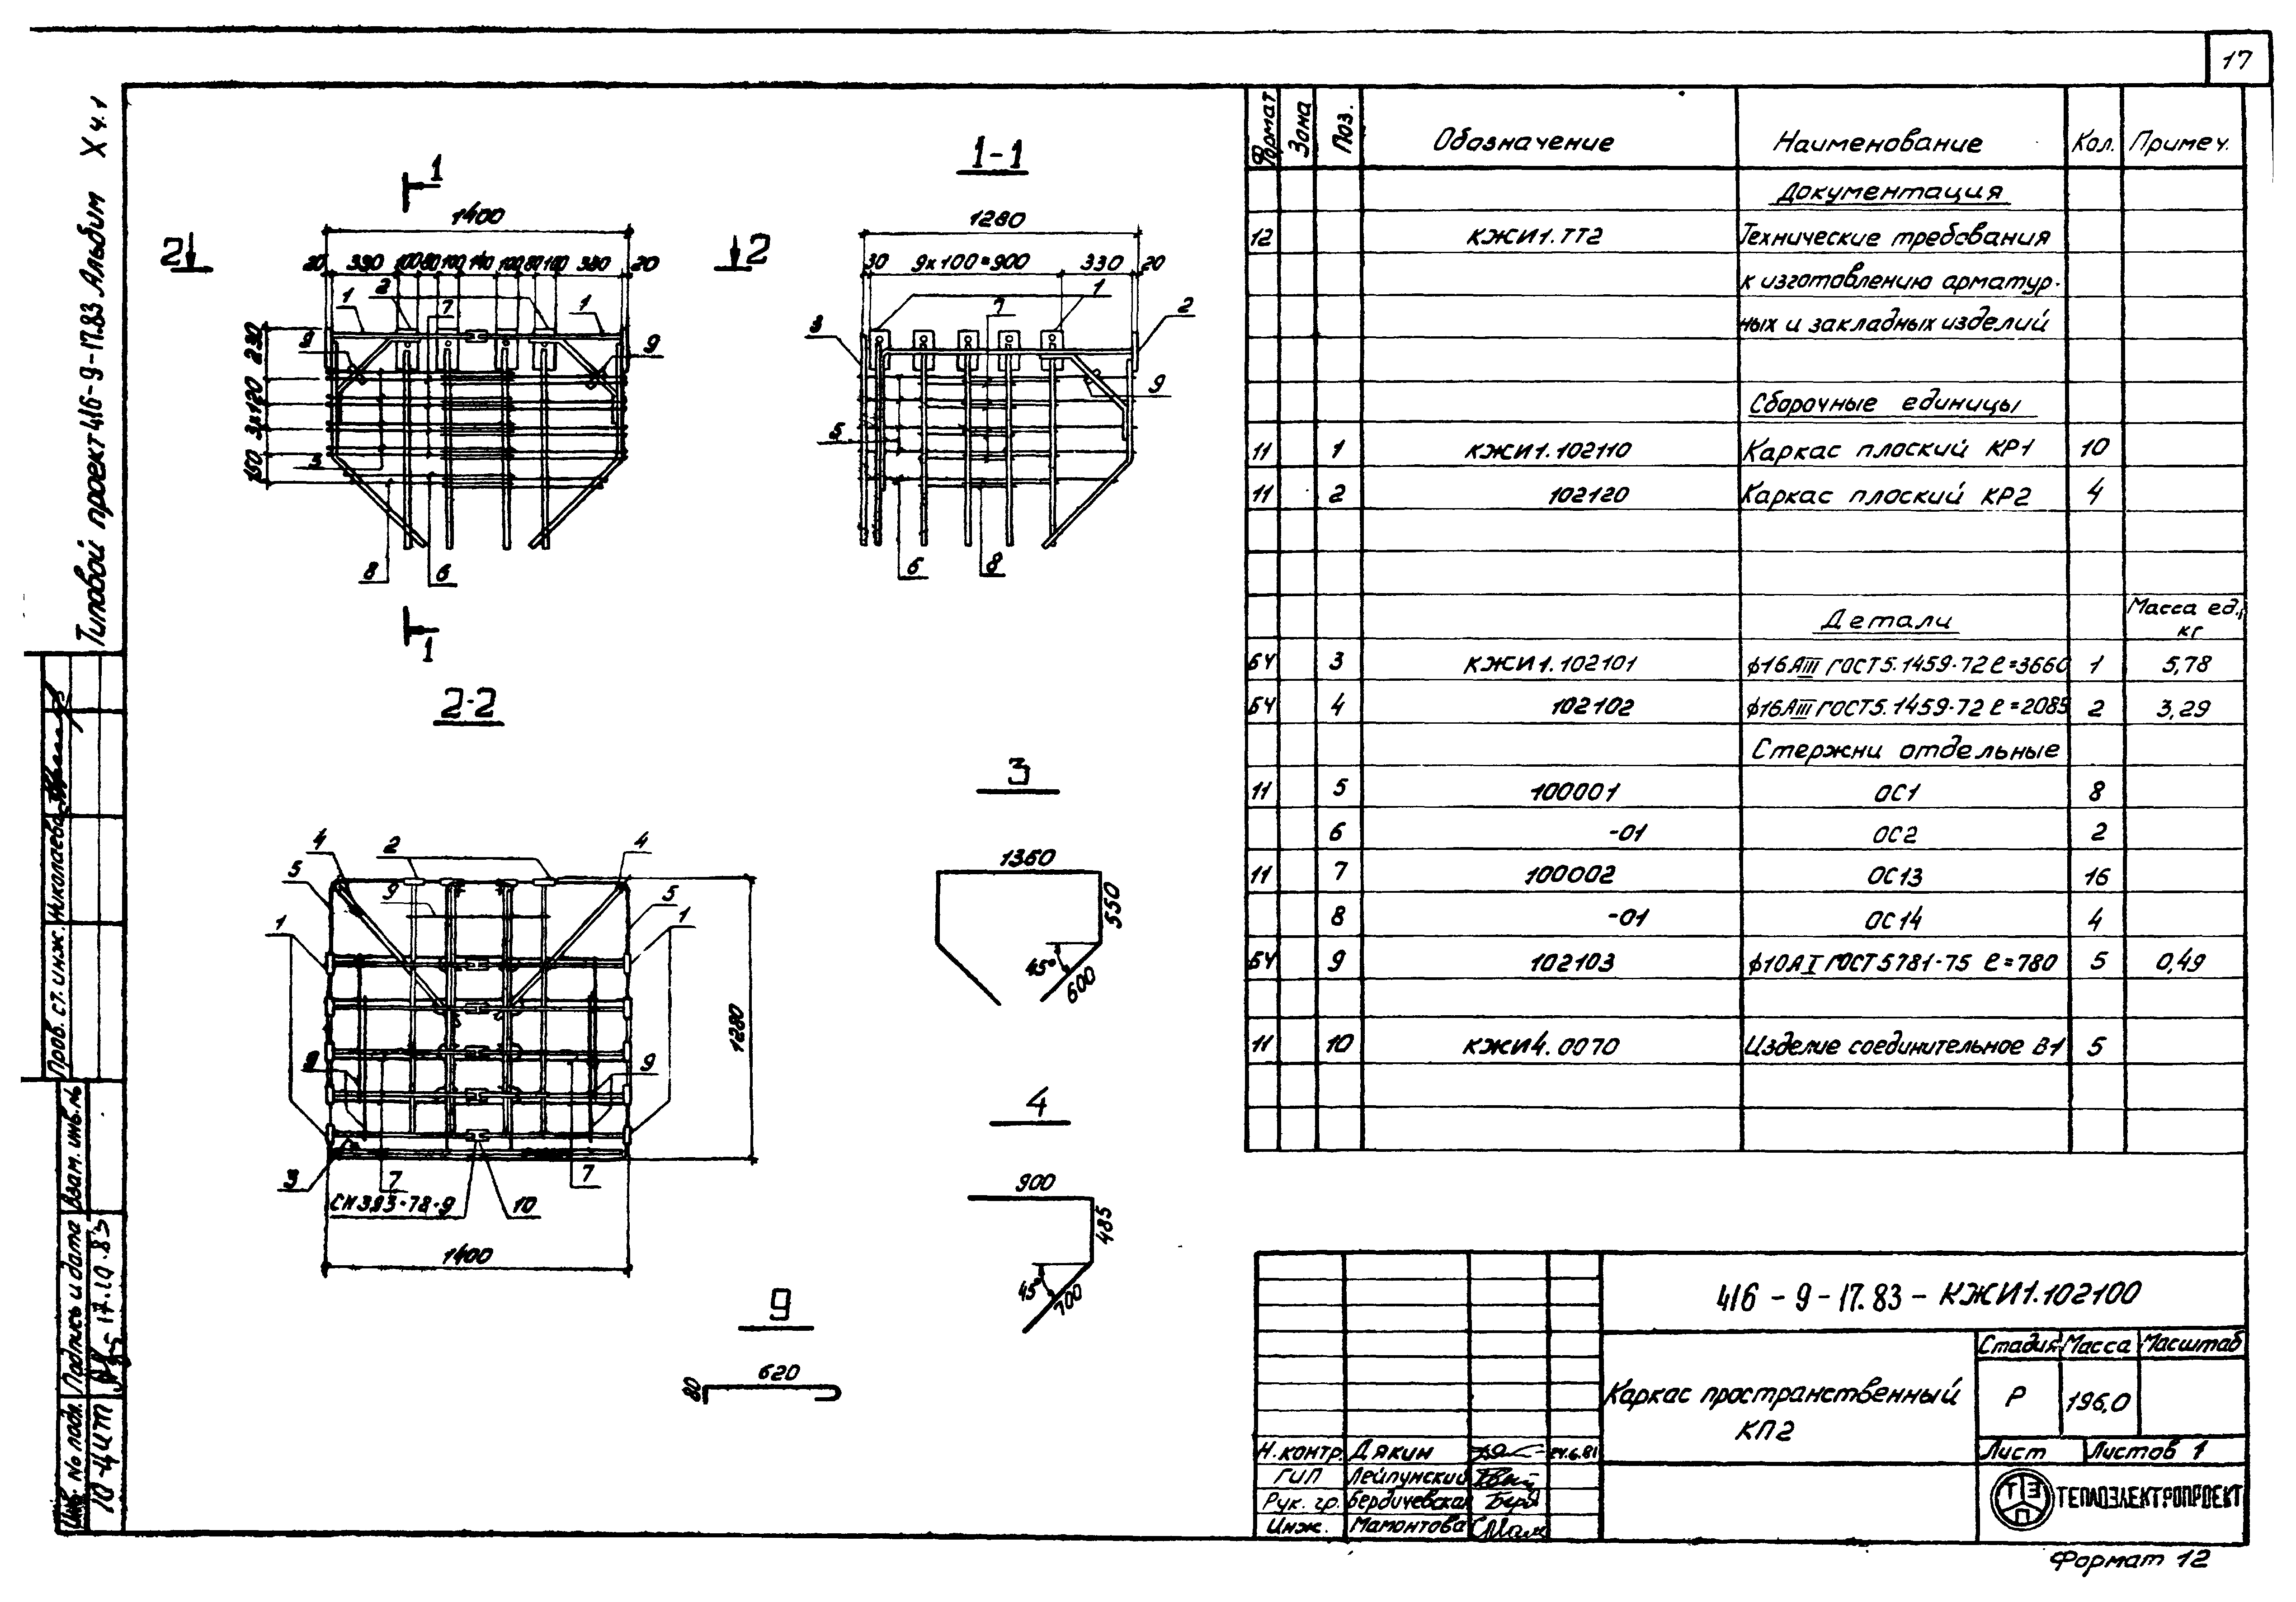 17
Типовой проект 416-9-17.83 Альбом X ч.1
1
1
2
2
1400
20 330 100 80 100 140 100 80 100 330 20
1 2 7 1
230
3х120
150
9 9
5
8 6
1-1
1280
30 9х100=900 330 20
3 7 1 2
9
5
6 8
2-2
4 2 4
5 9 5
1 1
9 9
3 7 7
СН 393-78-9 10
1280
1400
3
1360
550
45°
600
4
900
485
45°
700
9
620
80
Формат Зона Поз. Обозначение Наименование Кол. Примеч.
Документация
12 КЖИ1.ТТ2 Технические требования
к изготовлению арматур-
ных и закладных изделий
Сборочные единицы
11 1 КЖИ1.102110 Каркас плоский КР1 10
11 2 102120 Каркас плоский КР2 4
Детали Масса ед., кг
БЧ 3 КЖИ1.102101 ϕ16АIII ГОСТ 5.1459-72 ℓ=3660 1 5,78
БЧ 4 102102 ϕ16АIII ГОСТ 5.1459-72 ℓ=2085 2 3,29
Стержни отдельные
11 5 100001 ОС1 8
6 -01 ОС2 2
11 7 100002 ОС13 16
8 -01 ОС14 4
БЧ 9 102103 ϕ10АI ГОСТ 5781-75 ℓ=780 5 0,49
11 10 КЖИ4.0070 Изделие соединительное В1 5
416-9-17.83-КЖИ1.102100
Каркас пространственный
КП2
Стадия Масса Масштаб
Р 196,0
Лист Листов 1
Н.контр. Дякин 24.6.81
ГИП Лейпунский
Рук. гр. Бердичевская
Инж. Мамонтова
ТЭП
ТЕПЛОЭЛЕКТРОПРОЕКТ
Формат 12
Пров. ст. инж. Николаева
Взам. инв. №
Подпись и дата 17.10.83
Инв. № подл.